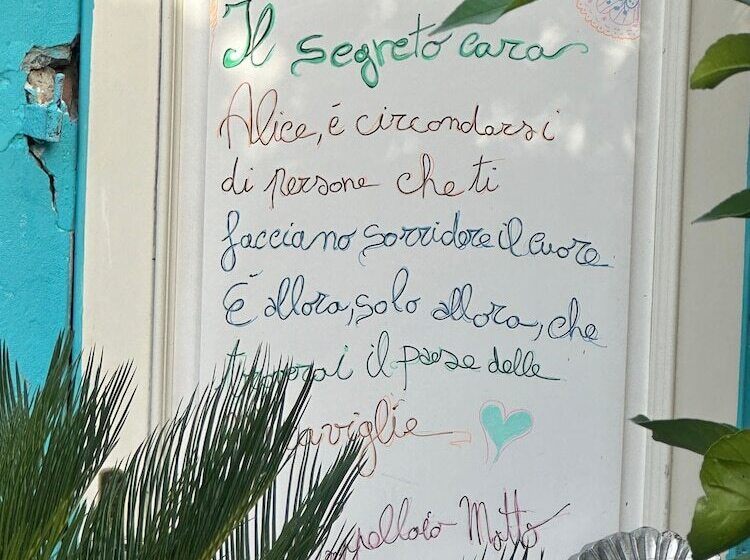 Il segreto cara
Alice, é circondarsi
di persone che ti
facciano sorridere il cuore
É allora, solo allora, che
troverai il paese delle
Matto